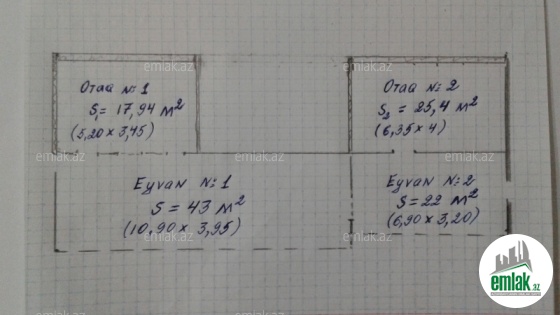 Отаq №1
S₁ = 17,94 м²
(5,20 x 3,45)
Отаq №2
S₂ = 25,4 м²
(6,35 x 4)
Eyvan №1
S = 43 м²
(10,90 x 3,95)
Eyvan №2
S = 22 м²
(6,90 x 3,20)
emlak.az
emlak.az
emlak.az
emlak.az
emlak.az
emlak.az
emlak.az
emlak.az